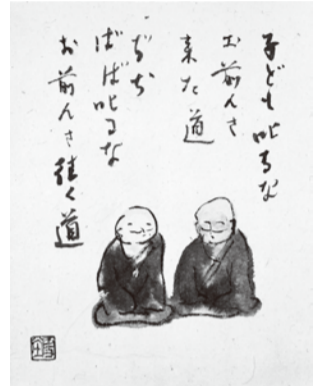 子ども叱るな
お前んさ
来た道
ぢぢ
ばば叱るな
お前んさ往く道